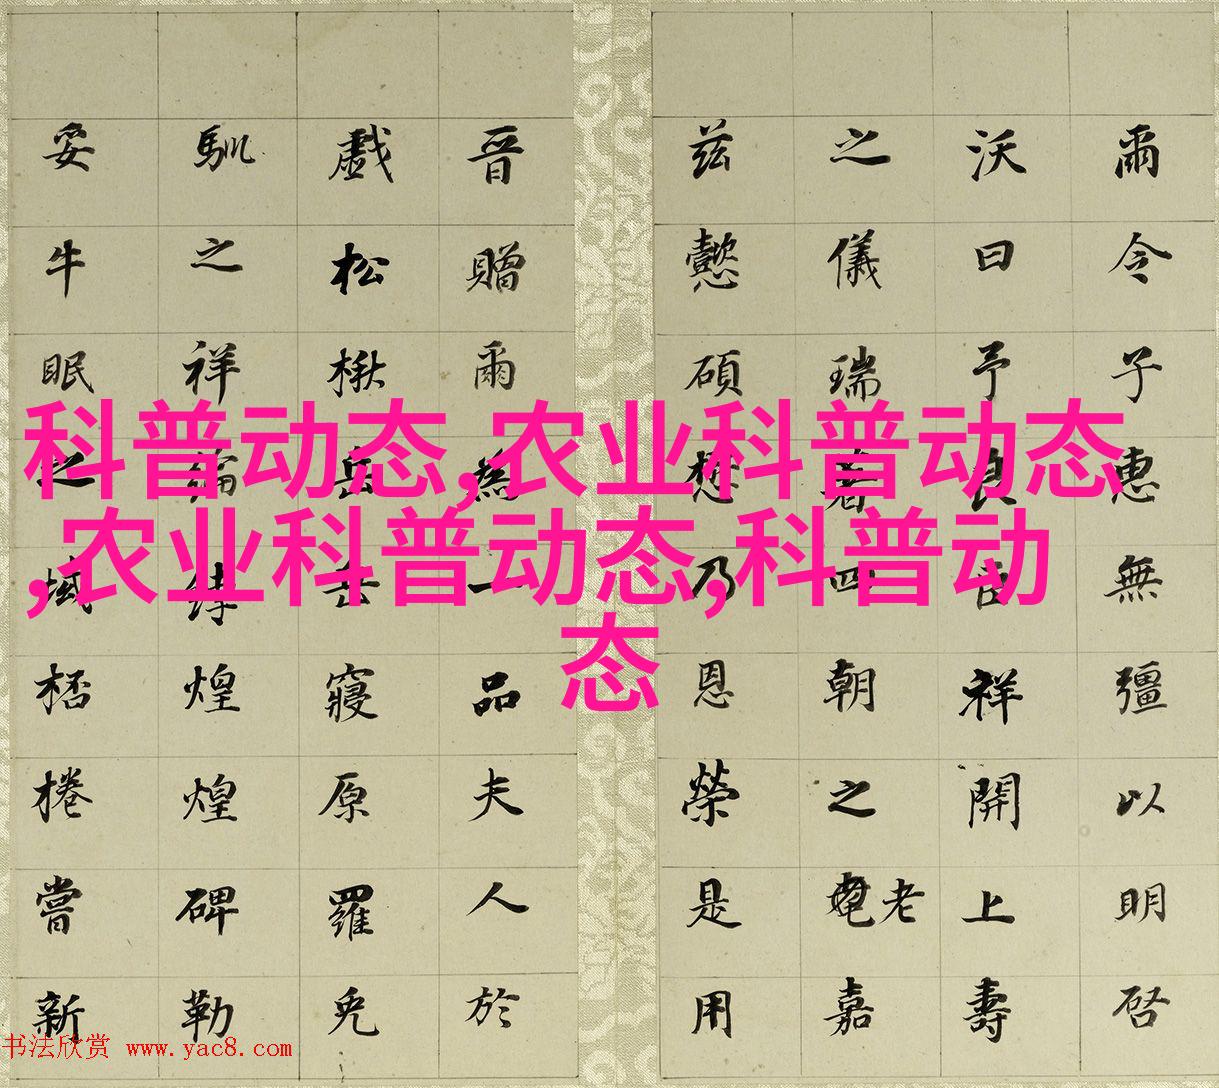 爾令子惠無彊以明啓
沃曰予良臣祥開上壽
之儀瑞著四朝之老嘉
茲懿碩乃恩榮是用
晉贈爾為一品夫人於
戲松楸岳岳寢原羅
馴之祥綸綍煌煌碑勒
妥牛眠之域桮棬嘗新
科普动态,农业科普动态
,农业科普动态,科普动
态
书法欣赏 www.yac8.com